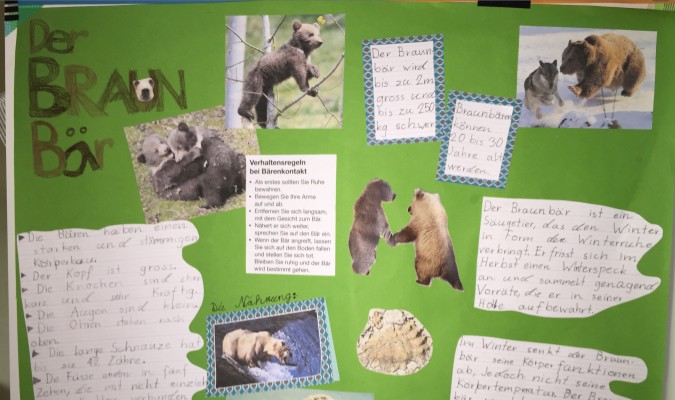 Der
BRAUN
Bär
Der Braun-
bär wird
bis zu 2m
gross und
bis zu 250
kg schwer
Braunbären
können
20 bis 30
Jahre alt
werden.
Verhaltensregeln
bei Bärenkontakt
• Als erstes sollten Sie Ruhe
bewahren.
• Bewegen Sie Ihre Arme
auf und ab.
• Entfernen Sie sich langsam,
mit dem Gesicht zum Bär.
• Nähert er sich weiter,
sprechen Sie auf den Bär ein.
• Wenn der Bär angreift, lassen
Sie sich auf den Boden fallen
und stellen Sie sich tot.
Bleiben Sie ruhig und der Bär
wird bestimmt gehen.
▸ Die Bären haben einen
starken und stämmigen
Körperbau.
▸ Der Kopf ist gross.
▸ Die Knochen sind
und sehr kräftig.
▸ Die Augen sind klein.
▸ Die Ohren stehen nach
oben.
▸ Die lange Schnauze hat
bis zu Zähne.
▸ Die Füsse in fünf
Zehen, die mit nicht
Die Nahrung:
Der Braunbär ist ein
Säugetier, das den Winter
in Form der Winterruhe
verbringt. Er frisst sich im
Herbst einen Winterspeck
an und sammelt genügend
Vorräte, die er in seiner
Höhle aufbewahrt.
Im Winter senkt der Braun-
bär seine Körperfunktionen
ab, jedoch nicht seine
Körpertemperatur. Der